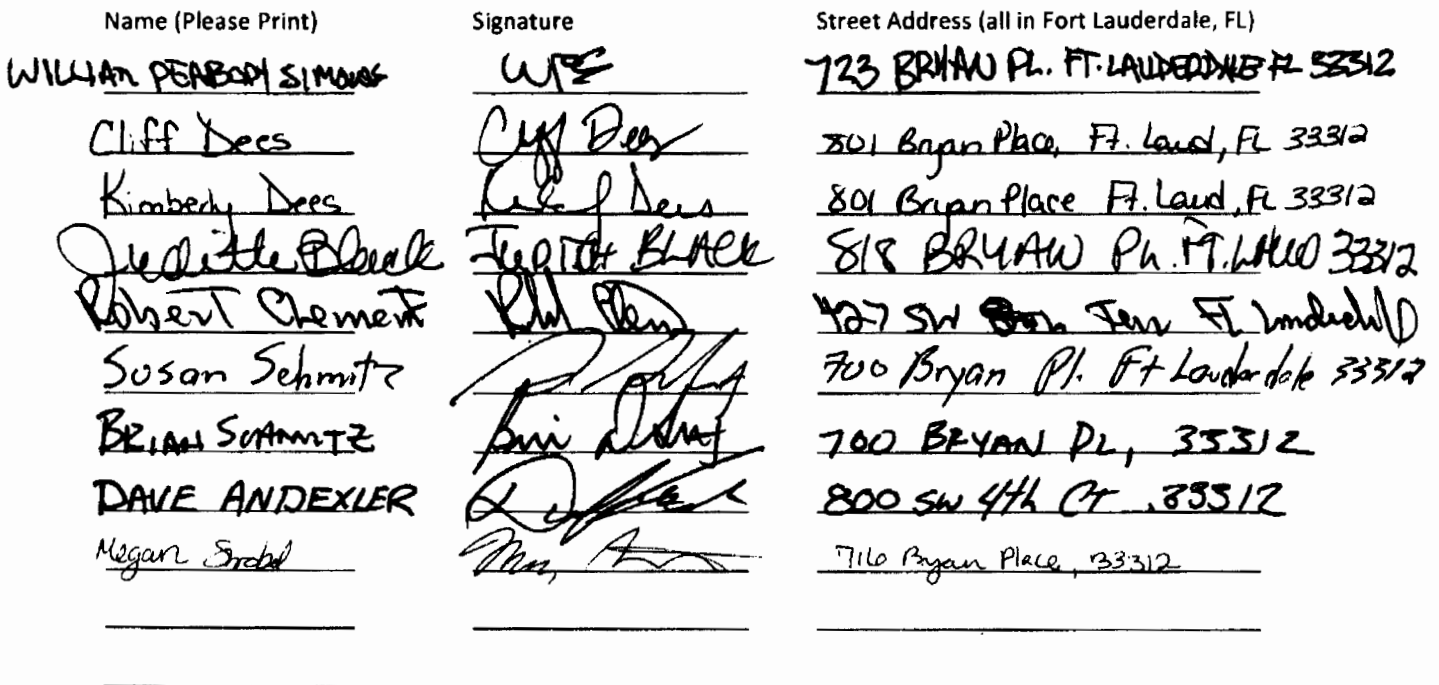 Name (Please Print) Signature Street Address (all in Fort Lauderdale, FL)
WILLIAM PEABODY SIMONS WPS 723 BRYAN PL. FT. LAUDERDALE FL 33312
Cliff Dees Cliff Dees 801 Bryan Place, Ft. Laud, FL 33312
Kimberly Dees Dees 801 Bryan Place Ft. Laud, FL 33312
Judith Black JUDITH BLACK 818 BRYAN PL. FT. LAUD 33312
Robert Clement 427 SW Terr Ft Lauderdale
Susan Schmitz 700 Bryan Pl. Ft Lauderdale 33312
BRIAN SCHMITZ 700 BRYAN PL, 33312
DAVE ANDEXLER 800 SW 4th CT, 33312
Megan Strobel 716 Bryan Place, 33312